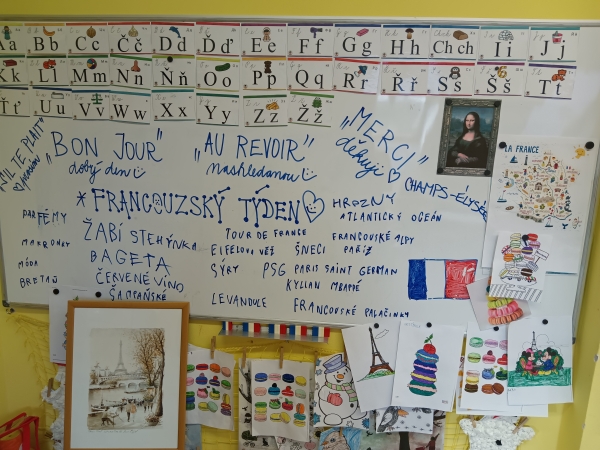 Aa Bb Cc Čč Dd Ďď Ee Ff Gg Hh Ch ch Ii Jj
Kk Ll Mm Nn Ňň Oo Pp Qq Rr Řř Ss Šš Tt
Ťť Uu Vv Ww Xx Yy Zz Žž
S'IL TE PLAIT
prosím
„BON JOUR"
dobrý den
„AU REVOIR"
nashledanou
„MERCI"
děkuji
LA FRANCE
* FRANCOUZSKÝ TÝDEN
HROZNY
CHAMPS-ÉLYSÉE
ATLANTICKÝ OCEÁN
PARFÉMY
MAKRONKY
MÓDA
BRETAŇ
ŽABÍ STEHÝNKA
BAGETA
ČERVENÉ VÍNO
ŠAMPAŇSKÉ
TOUR DE FRANCE
EIFELOVA VĚŽ ŠNECI PAŘÍŽ
FRANCOUSKÉ ALPY
SÝRY PSG PARIS SAINT GERMAN
KYLIAN MBAPPÉ
LEVANDULE FRANCOUSKÉ PALAČINKY